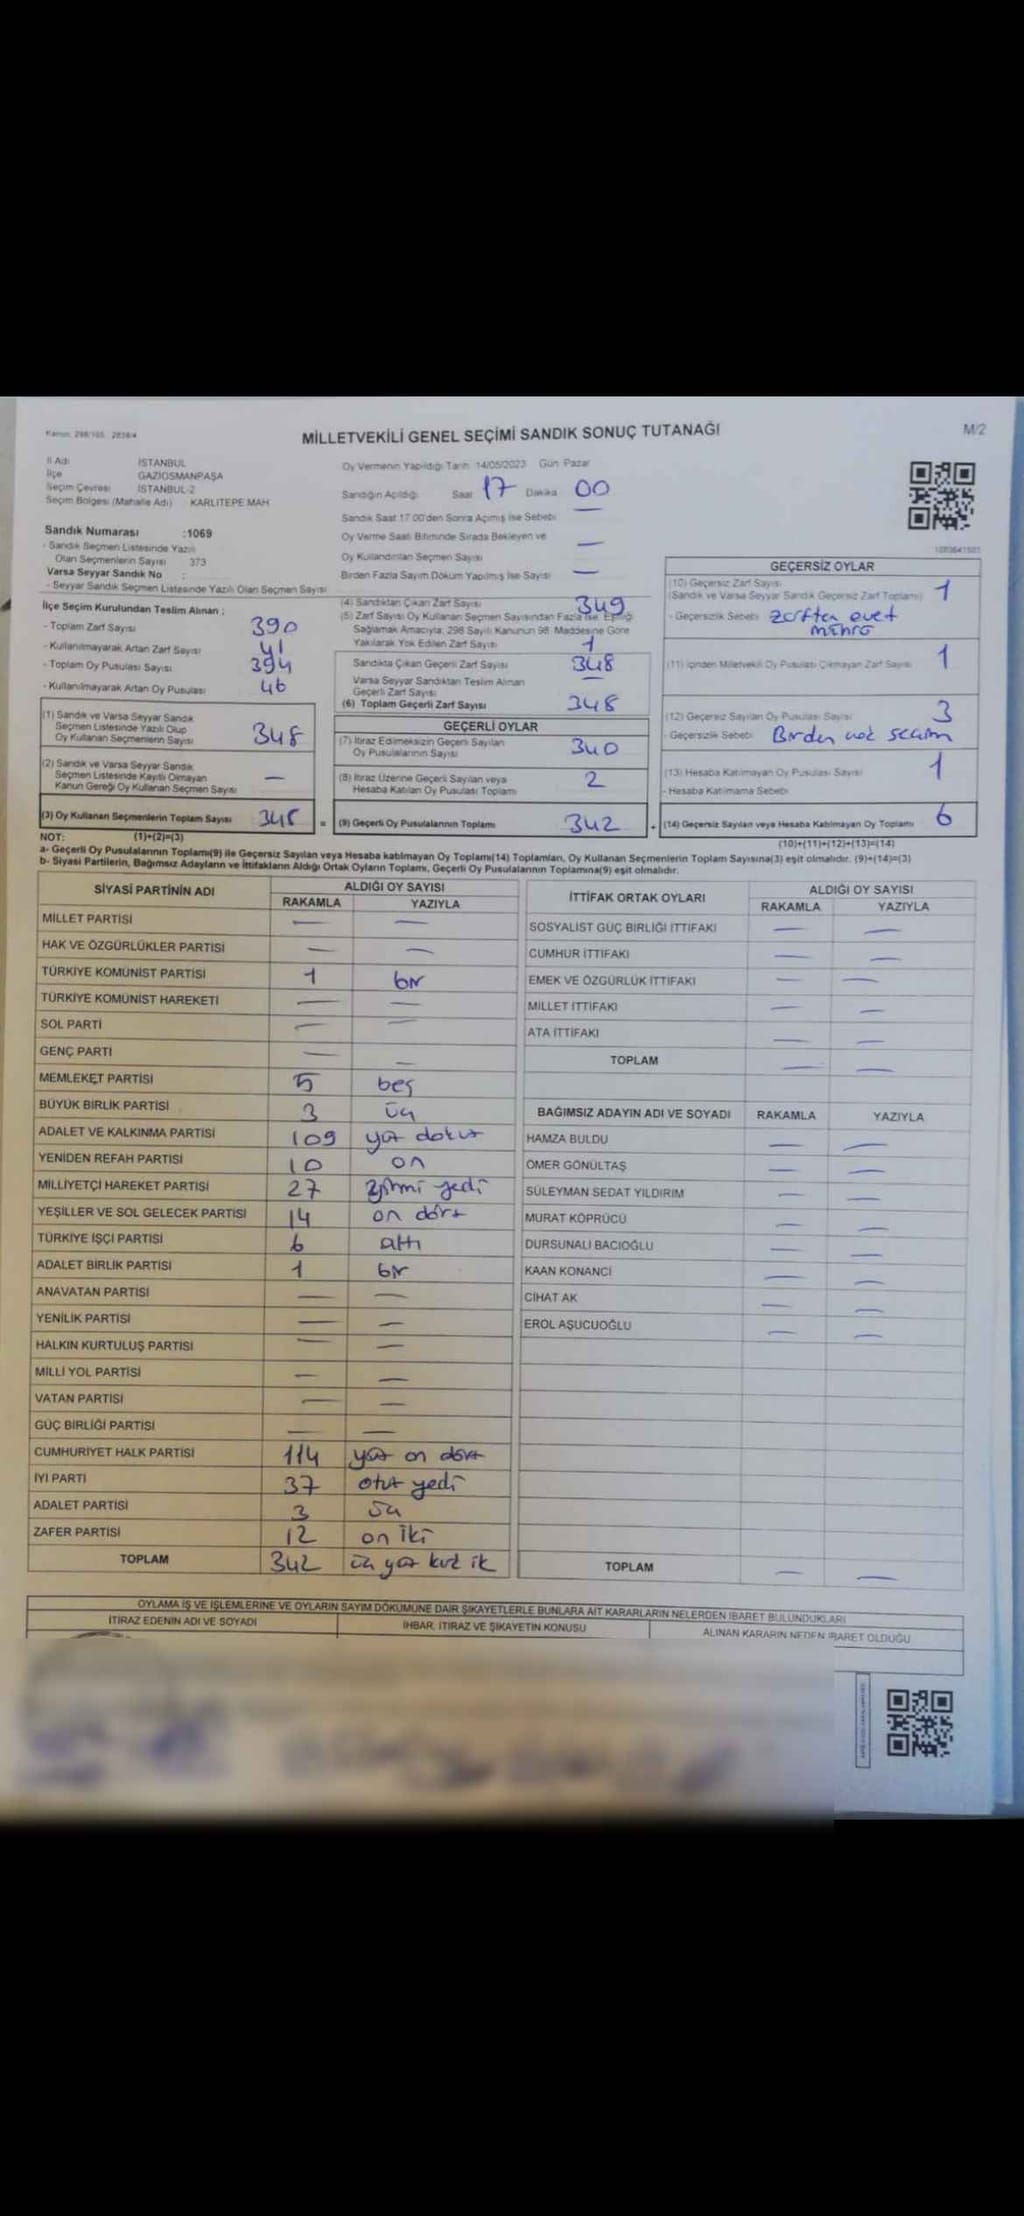 Kanun: 298/105, 2839/4
MİLLETVEKİLİ GENEL SEÇİMİ SANDIK SONUÇ TUTANAĞI
M/2
İl Adı İSTANBUL
İlçe GAZİOSMANPAŞA
Seçim Çevresi İSTANBUL-2
Seçim Bölgesi (Mahalle Adı) KARLITEPE MAH
Sandık Numarası :1069
- Sandık Seçmen Listesinde Yazılı
Olan Seçmenlerin Sayısı 373
Varsa Seyyar Sandık No :
- Seyyar Sandık Seçmen Listesinde Yazılı Olan Seçmen Sayısı
Oy Vermenin Yapıldığı Tarih: 14/05/2023 Gün Pazar
Sandığın Açıldığı Saat 17 Dakika 00
Sandık Saat 17:00'den Sonra Açılmış İse Sebebi —
Oy Verme Saati Bitiminde Sırada Bekleyen ve
Oy Kullandırılan Seçmen Sayısı —
Birden Fazla Sayım Döküm Yapılmış İse Sayısı —
İlçe Seçim Kurulundan Teslim Alınan :
- Toplam Zarf Sayısı 390
- Kullanılmayarak Artan Zarf Sayısı 41
- Toplam Oy Pusulası Sayısı 394
- Kullanılmayarak Artan Oy Pusulası 46
(1) Sandık ve Varsa Seyyar Sandık
Seçmen Listesinde Yazılı Olup
Oy Kullanan Seçmenlerin Sayısı 348
(2) Sandık ve Varsa Seyyar Sandık
Seçmen Listesinde Kayıtlı Olmayan
Kanun Gereği Oy Kullanan Seçmen Sayısı —
(3) Oy Kullanan Seçmenlerin Toplam Sayısı 348 =
(4) Sandıktan Çıkan Zarf Sayısı 349
(5) Zarf Sayısı Oy Kullanan Seçmen Sayısından Fazla İse, Eşitliği
Sağlamak Amacıyla, 298 Sayılı Kanunun 98. Maddesine Göre
Yakılarak Yok Edilen Zarf Sayısı 1
Sandıkta Çıkan Geçerli Zarf Sayısı 348
Varsa Seyyar Sandıktan Teslim Alınan
Geçerli Zarf Sayısı —
(6) Toplam Geçerli Zarf Sayısı 348
GEÇERLİ OYLAR
(7) İtiraz Edilmeksizin Geçerli Sayılan
Oy Pusulalarının Sayısı 340
(8) İtiraz Üzerine Geçerli Sayılan veya
Hesaba Katılan Oy Pusulası Toplamı 2
(9) Geçerli Oy Pusulalarının Toplamı 342 +
GEÇERSİZ OYLAR
(10) Geçersiz Zarf Sayısı
(Sandık ve Varsa Seyyar Sandık Geçersiz Zarf Toplamı) 1
- Geçersizlik Sebebi zarftan evet
mührü
(11) İçinden Milletvekili Oy Pusulası Çıkmayan Zarf Sayısı 1
(12) Geçersiz Sayılan Oy Pusulası Sayısı 3
- Geçersizlik Sebebi Birden seçim
(13) Hesaba Katılmayan Oy Pusulası Sayısı 1
- Hesaba Katılmama Sebebi
(14) Geçersiz Sayılan veya Hesaba Katılmayan Oy Toplamı 6
NOT: (1)+(2)=(3)
(10)+(11)+(12)+(13)=(14)
a- Geçerli Oy Pusulalarının Toplamı(9) ile Geçersiz Sayılan veya Hesaba katılmayan Oy Toplamı(14) Toplamları, Oy Kullanan Seçmenlerin Toplam Sayısına(3) eşit olmalıdır. (9)+(14)=(3)
b- Siyasi Partilerin, Bağımsız Adayların ve İttifakların Aldığı Ortak Oyların Toplamı, Geçerli Oy Pusulalarının Toplamına(9) eşit olmalıdır.
SİYASİ PARTİNİN ADI ALDIĞI OY SAYISI
RAKAMLA YAZIYLA
MİLLET PARTİSİ — —
HAK VE ÖZGÜRLÜKLER PARTİSİ — —
TÜRKİYE KOMÜNİST PARTİSİ 1 bir
TÜRKİYE KOMÜNİST HAREKETİ — —
SOL PARTİ — —
GENÇ PARTİ — —
MEMLEKET PARTİSİ 5 beş
BÜYÜK BİRLİK PARTİSİ 3 üç
ADALET VE KALKINMA PARTİSİ 109 yüz dokuz
YENİDEN REFAH PARTİSİ 10 on
MİLLİYETÇİ HAREKET PARTİSİ 27 yirmi yedi
YEŞİLLER VE SOL GELECEK PARTİSİ 14 on dört
TÜRKİYE İŞÇİ PARTİSİ 6 altı
ADALET BİRLİK PARTİSİ 1 bir
ANAVATAN PARTİSİ — —
YENİLİK PARTİSİ — —
HALKIN KURTULUŞ PARTİSİ — —
MİLLİ YOL PARTİSİ — —
VATAN PARTİSİ — —
GÜÇ BİRLİĞİ PARTİSİ — —
CUMHURİYET HALK PARTİSİ 114 yüz on dört
İYİ PARTİ 37 otuz yedi
ADALET PARTİSİ 3 üç
ZAFER PARTİSİ 12 on iki
TOPLAM 342 üç yüz kırk iki
İTTİFAK ORTAK OYLARI ALDIĞI OY SAYISI
RAKAMLA YAZIYLA
SOSYALİST GÜÇ BİRLİĞİ İTTİFAKI — —
CUMHUR İTTİFAKI — —
EMEK VE ÖZGÜRLÜK İTTİFAKI — —
MİLLET İTTİFAKI — —
ATA İTTİFAKI — —
TOPLAM — —
BAĞIMSIZ ADAYIN ADI VE SOYADI RAKAMLA YAZIYLA
HAMZA BULDU — —
ÖMER GÖNÜLTAŞ — —
SÜLEYMAN SEDAT YILDIRIM — —
MURAT KÖPRÜCÜ — —
DURSUNALİ BACIOĞLU — —
KAAN KONANCİ — —
CİHAT AK — —
EROL AŞUCUOĞLU — —
TOPLAM — —
OYLAMA İŞ VE İŞLEMLERİNE VE OYLARIN SAYIM DÖKÜMÜNE DAİR ŞİKAYETLERLE BUNLARA AİT KARARLARIN NELERDEN İBARET BULUNDUKLARI
İTİRAZ EDENİN ADI VE SOYADI İHBAR, İTİRAZ VE ŞİKAYETİN KONUSU ALINAN KARARIN NEDEN İBARET OLDUĞU